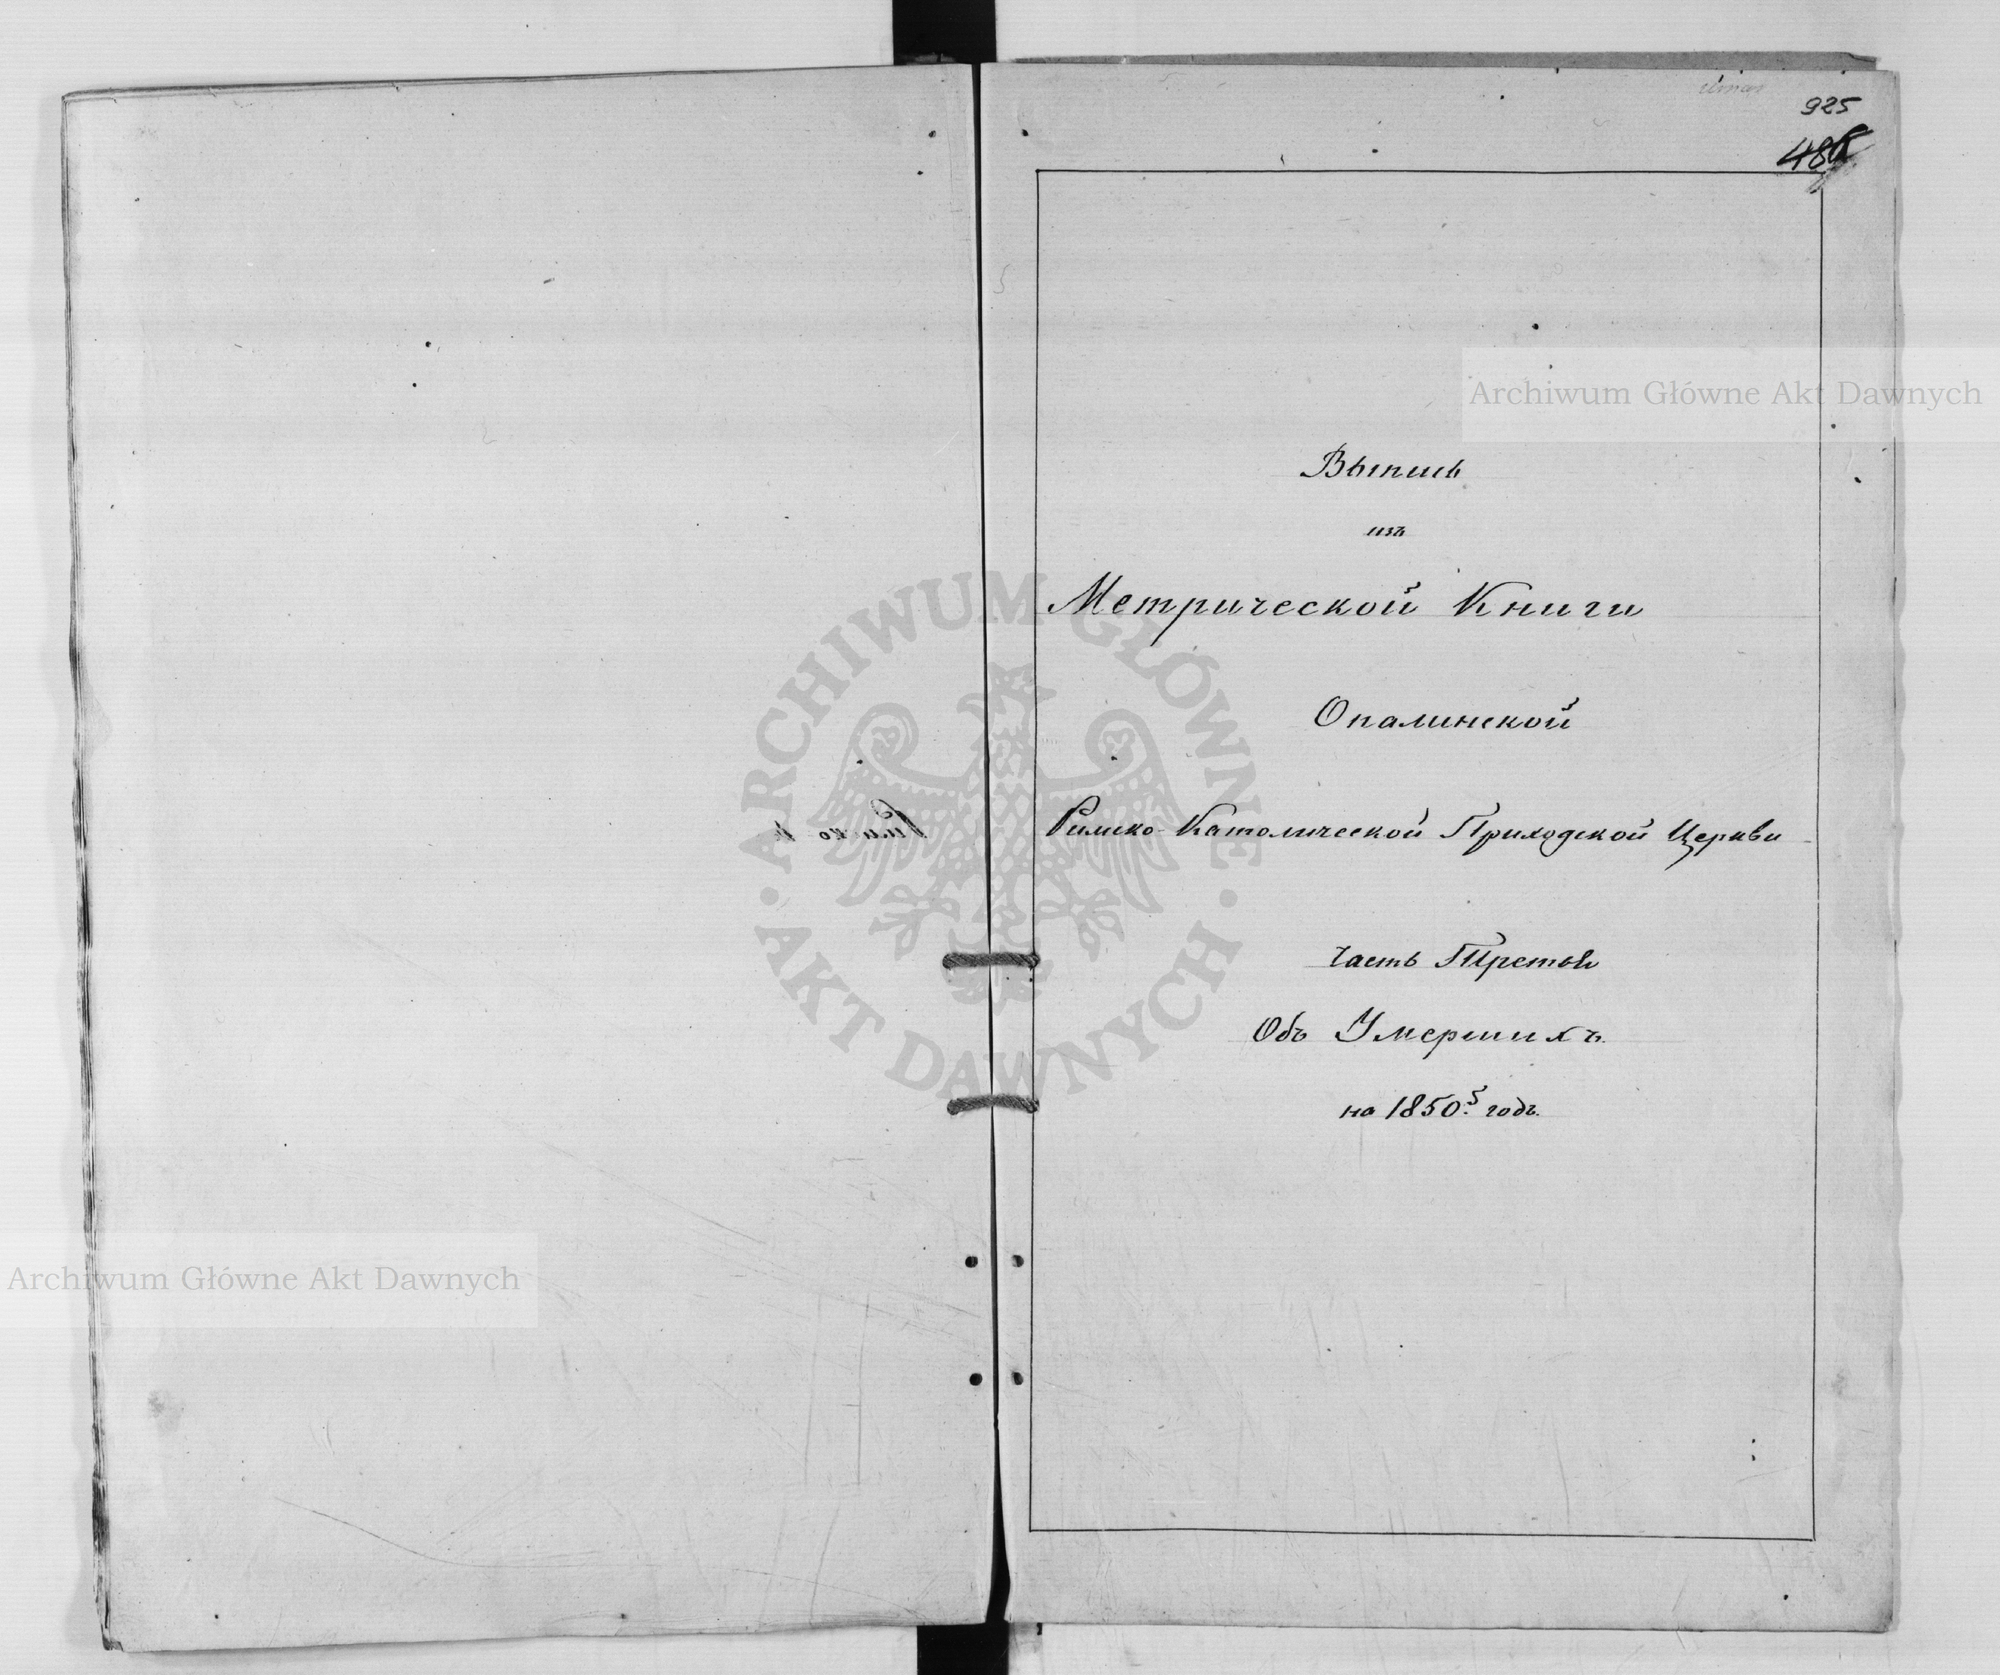 925
Archiwum Główne Akt Dawnych
Выпись
изъ
Метрической Книги
Опалинской
Римско-Католической Приходской Церкви
Часть Третья
Объ Умершихъ
на 1850й годъ.
ARCHIWUM GŁÓWNE
AKT DAWNYCH
Archiwum Główne Akt Dawnych